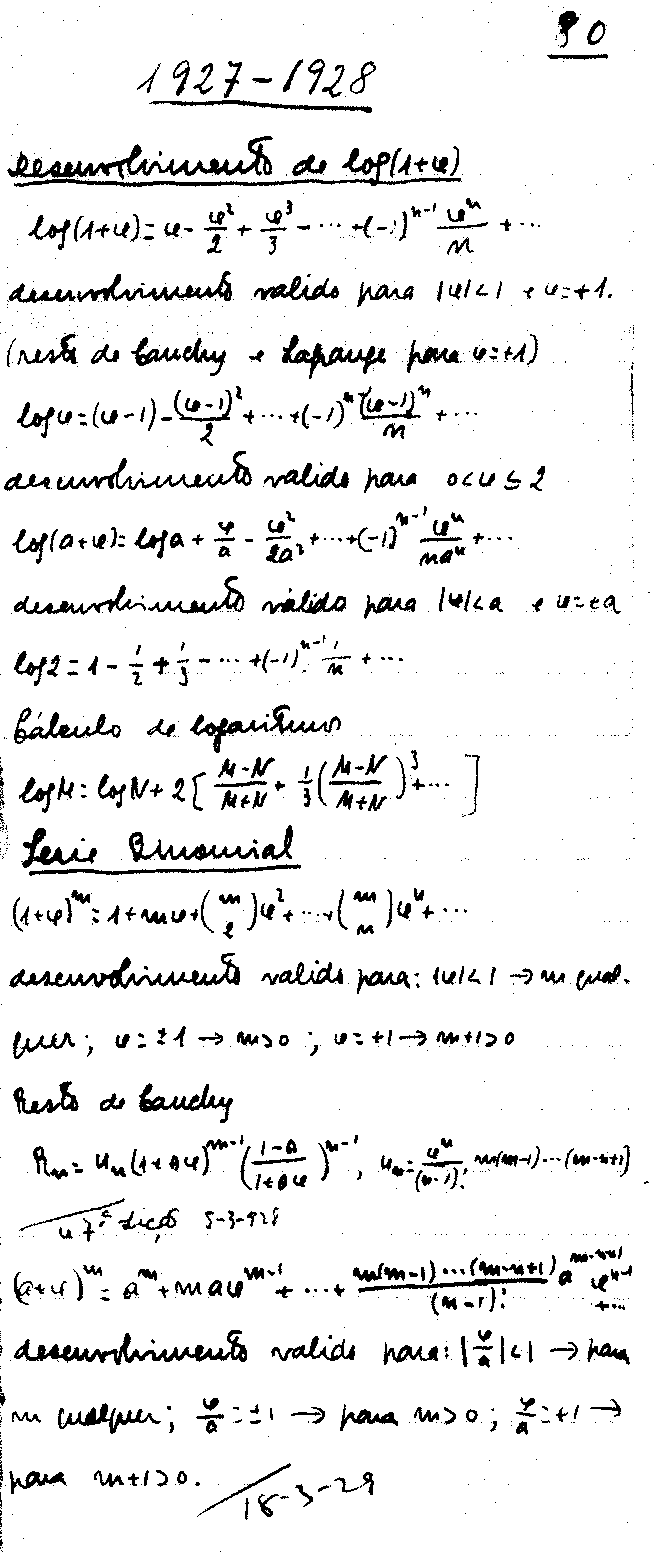 90
1927-1928
Desenvolvimento de log(1+φ)
log(1+φ)=φ-φ²/2+φ³/3-...+(-1)ⁿ⁻¹ φⁿ/n+...
desenvolvimento valido para |φ|<1 e φ=+1.
(resto de Cauchy e Lagrange para φ=+1)
logφ=(φ-1)-(φ-1)²/2+...+(-1)ⁿ(φ-1)ⁿ/n+...
desenvolvimento valido para 0<φ≤2
log(a+φ)=loga+φ/a-φ²/2a²+...+(-1)ⁿ⁻¹ φⁿ/naⁿ+...
desenvolvimento válido para |φ|<a e φ=+a
log2=1-1/2+1/3-...+(-1)ⁿ⁻¹ 1/n+...
Cálculo de logaritmos
logM=logN+2[(M-N)/(M+N)+1/3((M-N)/(M+N))³+...]
Serie Binomial
(1+φ)ᵐ=1+mφ+(m 2)φ²+...+(m n)φⁿ+...
desenvolvimento valido para: |φ|<1→m qual-
quer; φ=±1→m>0; φ=+1→m+1>0
Resto de Cauchy
Rₙ=uₙ(1+θφ)ᵐ⁻¹((1-θ)/(1+θφ))ⁿ⁻¹, uₙ=φⁿ/(n-1)! m(m-1)...(m-n+1)
47ª Lição 5-3-928
(a+φ)ᵐ=aᵐ+maφᵐ⁻¹+...+m(m-1)...(m-n+1)/(n-1)! aᵐ⁻ⁿ⁺¹φⁿ⁻¹+...
desenvolvimento valido para: |φ/a|<1→para
m qualquer; φ/a=±1→para m>0; φ/a=+1→
para m+1>0.
18-3-29